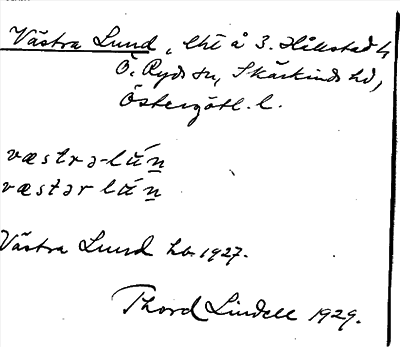 Västra Lund, lht å 3. Hillestad 4
Ö. Ryds sn, Skärkinds hd,
Östergötl. l.
væstrə-lún
væstər lún
Västra Lund hb. 1927.
Thord Lindell 1929.